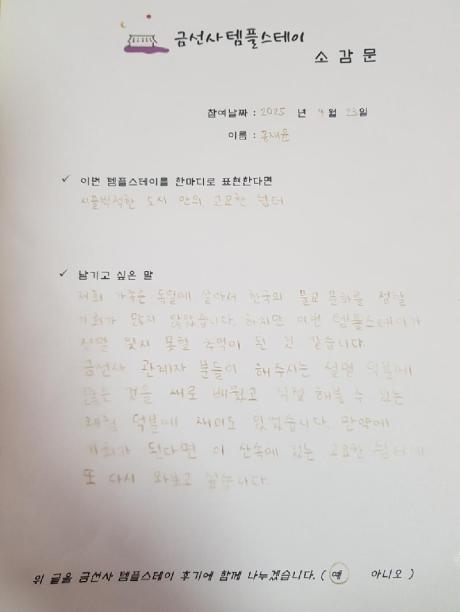 금선사템플스테이
소 감 문
참여날짜 : 2025 년 4월 23일
이름 : 홍재윤
✓ 이번 템플스테이를 한마디로 표현한다면
시끌벅적한 도시 안의 고요한 쉼터
✓ 남기고 싶은 말
저희 가족은 독일에 살아서 한국의 불교 문화를 접할
기회가 많지 않았습니다. 하지만 이번 템플스테이가
정말 잊지 못할 추억이 된 것 같습니다.
금선사 관리자 분들이 해주시는 설명 덕분에
많은 것을 새로 배웠고 직접 해볼 수 있는
체험 덕분에 재미도 있었습니다. 만약에
기회가 된다면 이 산속에 있는 고요한 쉼터에
또 다시 와보고 싶습니다.
위 글을 금선사 템플스테이 후기에 함께 나누겠습니다. ( 예 아니오 )